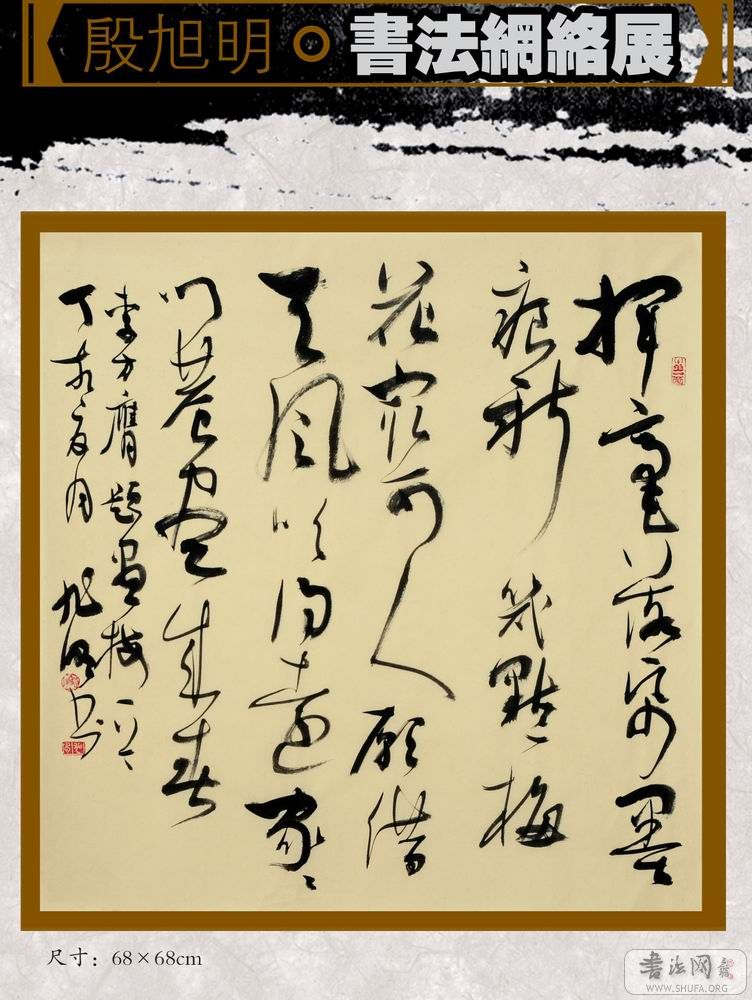 殷旭明 書法網絡展
揮毫落紙墨
痕新幾點梅
花最可人願借
天風吹得遠家〻
門巷盡成春
李方膺題畫梅一
丁亥夏月 旭明书
尺寸：68×68cm
書法网
WWW.SHUFA.ORG